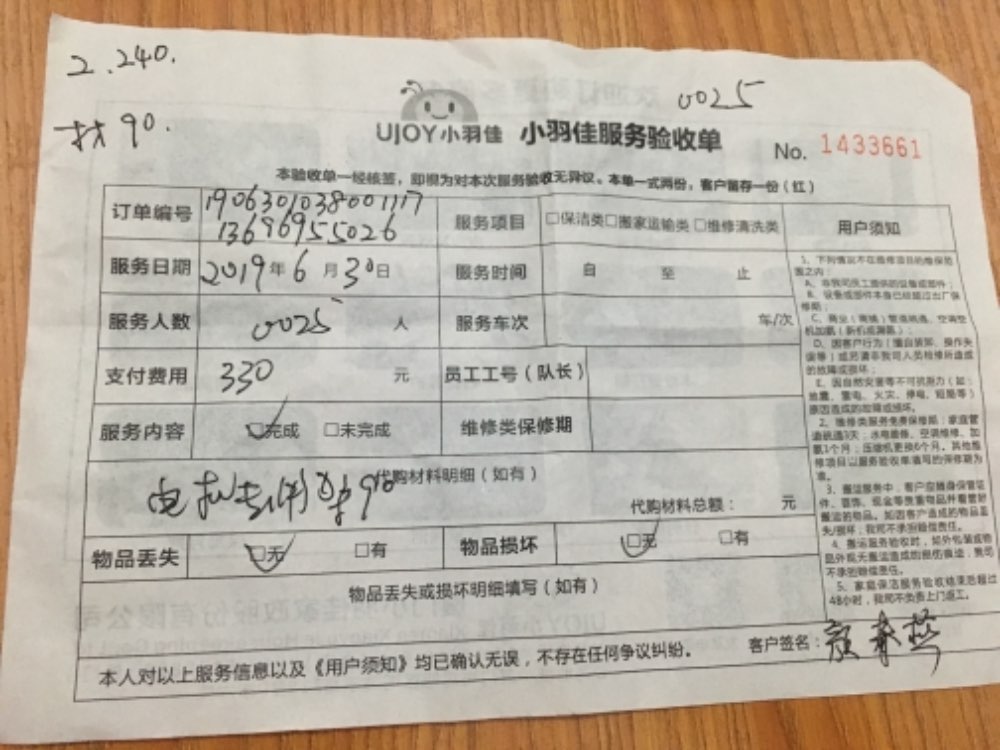 2.240.
材90.
0025
UJOY小羽佳 小羽佳服务验收单
No. 1433661
本验收单一经核签，即视为对本次服务验收无异议。本单一式两份，客户留存一份（红）
订单编号 1906301038001117
13696955026
服务项目 □保洁类□搬家运输类 □维修清洗类
服务日期 2019年6月30日
服务时间 自 至 止
服务人数 0025 人
服务车次 车/次
支付费用 330 元
员工工号（队长）
服务内容 □完成 □未完成
维修类保修期
代购材料明细（如有）
代购材料总额： 元
物品丢失 □无 □有
物品损坏 □无 □有
物品丢失或损坏明细填写（如有）
本人对以上服务信息以及《用户须知》均已确认无误，不存在任何争议纠纷。
客户签名：
用户须知
1、下列情况不在维修项目的维保范
围之内：
A、非我司员工提供的设备或部件；
B、设备或部件本身已经超过出厂保
修期；
D、因客户行为（擅自装卸、操作失
误等）或另请非我司人员检修所造成
的故障或损坏；
E、因自然灾害等不可抗拒力（如：
地震、雷电、火灾、停电、短路等）
原因造成的故障或损坏。
2、维修类服务免费保修期：家庭管
道疏通3天；水电维修、空调维修、加
氨1个月；压缩机更换6个月。其他维
修项目以服务验收单填写的保修期为
准。
3、搬运服务中，客户应随身保管证
件、首饰、现金等贵重物品并看管好
搬运的物品。如因客户造成的物品丢
失/损坏，我司不承担赔偿责任。
4、搬运服务验收时，如外包装或物
品外观无搬运造成的损伤痕迹，我司
不承担赔偿责任。
5、家庭保洁服务验收结束后超过
48小时，我司不负责上门返工。